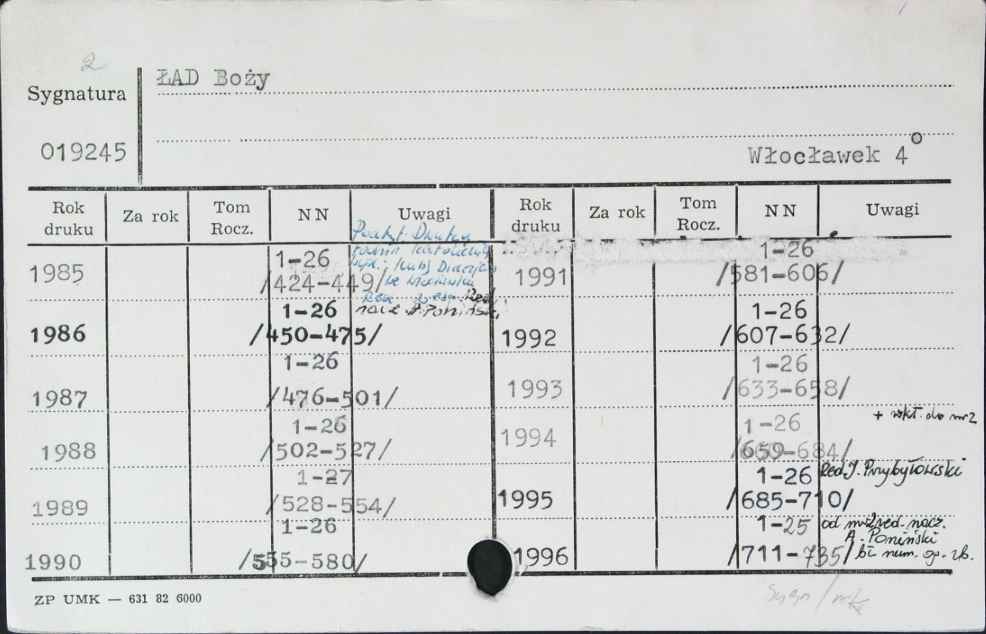 2
ŁAD Boży
Sygnatura
019245
Włocławek 4°
Rok druku Za rok Tom Rocz. NN Uwagi Rok druku Za rok Tom Rocz. NN Uwagi
1985 1-26 /424-449/
1986 1-26 /450-475/
1987 1-26 /476-501/
1988 1-26 /502-527/
1989 1-27 /528-554/
1990 1-26 /555-580/
1991 1-26 /581-606/
1992 1-26 /607-632/
1993 1-26 /633-658/
1994 1-26 /659-684/ + wkł. do nr 2
1995 1-26 /685-710/ Red. J. Przybyłowski
1996 1-25 /711-735/ od nr 2 red. nacz.
A. Poniński
bł. num. og. zb.
ZP UMK — 631 82 6000